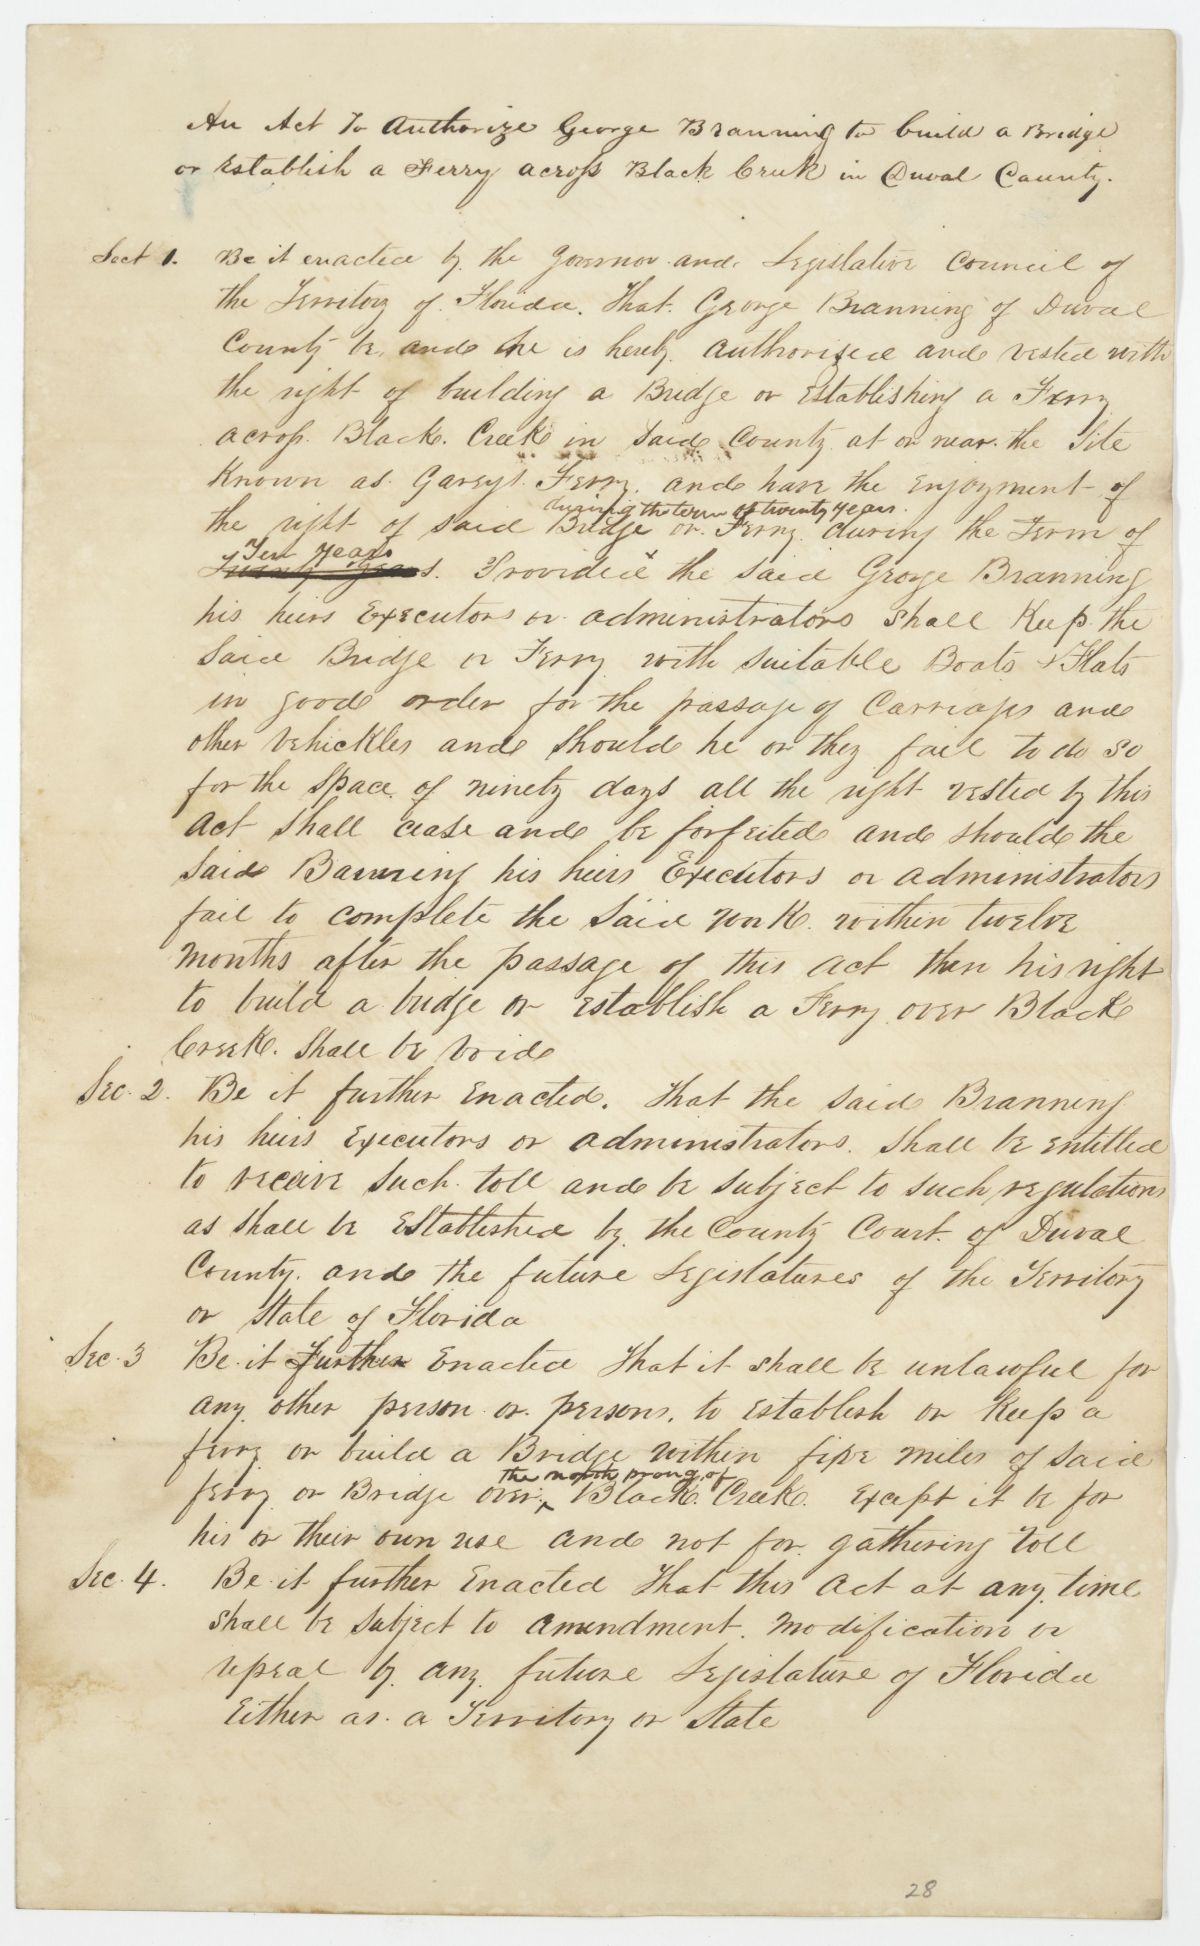 An Act To Authorize George Branning to build a Bridge
or Establish a Ferry across Black Creek in Duval County.
Sect 1. Be it enacted by the Governor and Legislative Council of
the Territory of Florida. That George Branning of Duval
County be, and he is hereby authorised and vested with
the right of building a Bridge or Establishing a Ferry
across Black Creek in Said County at or near the Site
Known as Gareys Ferry, and have the Enjoyment of
during the term of twenty years.
the right of said Bridge or Ferry during the Term of
Ten years
Twenty years. Provided the said George Branning
his heirs Executors or administrators shall Keep the
Said Bridge or Ferry with suitable Boats & Flats
in good order for the passage of Carriages and
other Vehickles and should he or they fail to do so
for the Space of ninety days all the right vested by this
Act Shall cease and be forfeited and should the
Said Banning his heirs Executors or administrators
fail to complete the Said work within twelve
months after the passage of this Act then his right
to build a bridge or Establish a Ferry over Black
Creek. Shall be Void
Sec. 2. Be it further Enacted. That the said Branning
his heirs Executors or administrators. Shall be entitled
to receive such toll and be subject to such regulations
as shall be Established by the County Court of Duval
County. and the future Legislatures of the Territory
or State of Florida
Sec. 3 Be it Further Enacted That it shall be unlawful for
any other person or persons, to Establish or Keep a
ferry or build a Bridge within five miles of said
the north prong of
ferry or Bridge over ‸ Black Creek. Except it be for
his or their own use and not for gathering toll
Sec. 4. Be it further Enacted That this Act at any time
shall be subject to amendment. modification or
repeal by any future Legislature of Florida
Either as a Territory or State
28